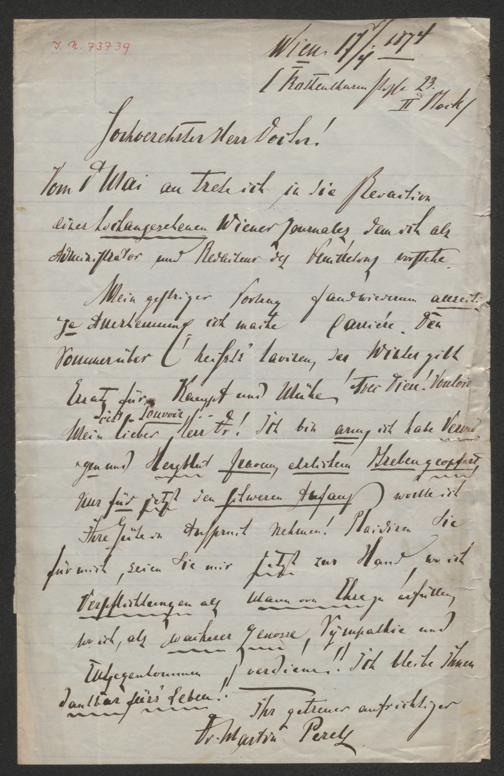 J. N. 73739
Wien 17/4 1874
Rothenthurmstraße 23.
II Stock
Hochverehrter Herr Doctor!
Vom 1 Mai an trete ich in die Redaction
eines hochangesehenen Wiener Journales, dem ich als
Administrator und Redacteur des vorstehe.
Mein gestriger Vortrag fand wiederum allseiti-
ge Anerkennung, ich mache Carrière. Den
Sommer über heißt's laviren, der Winter gibt
Ersatz für Kampf und Mühe!
c'est pouvoir!
Mein lieber Herr Dr! Ich bin arm, ich habe Vermö-
gen und Herzblut ehrlichem Streben geopfert,
nur für jetzt den schweren Anfang wollte ich
Ihre Güte in Anspruch nehmen! Plaidiren Sie
für mich, seien Sie mir jetzt zur Hand, wo ich
Verpflichtungen als Mann von Ehre zu erfüllen,
wo ich, als wackerer Genosse, Sympathie und
Entgegenkommen verdiene!! Ich bleibe Ihnen
dankbar fürs Leben!!
Ihr getreuer aufrichtiger
Dr. Martin Perels